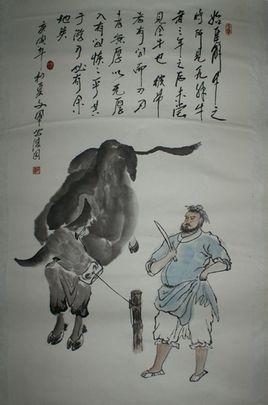 始臣解牛之
时所见无非牛
者三年之后未尝
见全牛也彼节
者有间而刀刃
者无厚以无厚
入有间恢之乎其
于游刃必有余
地矣
年初夏